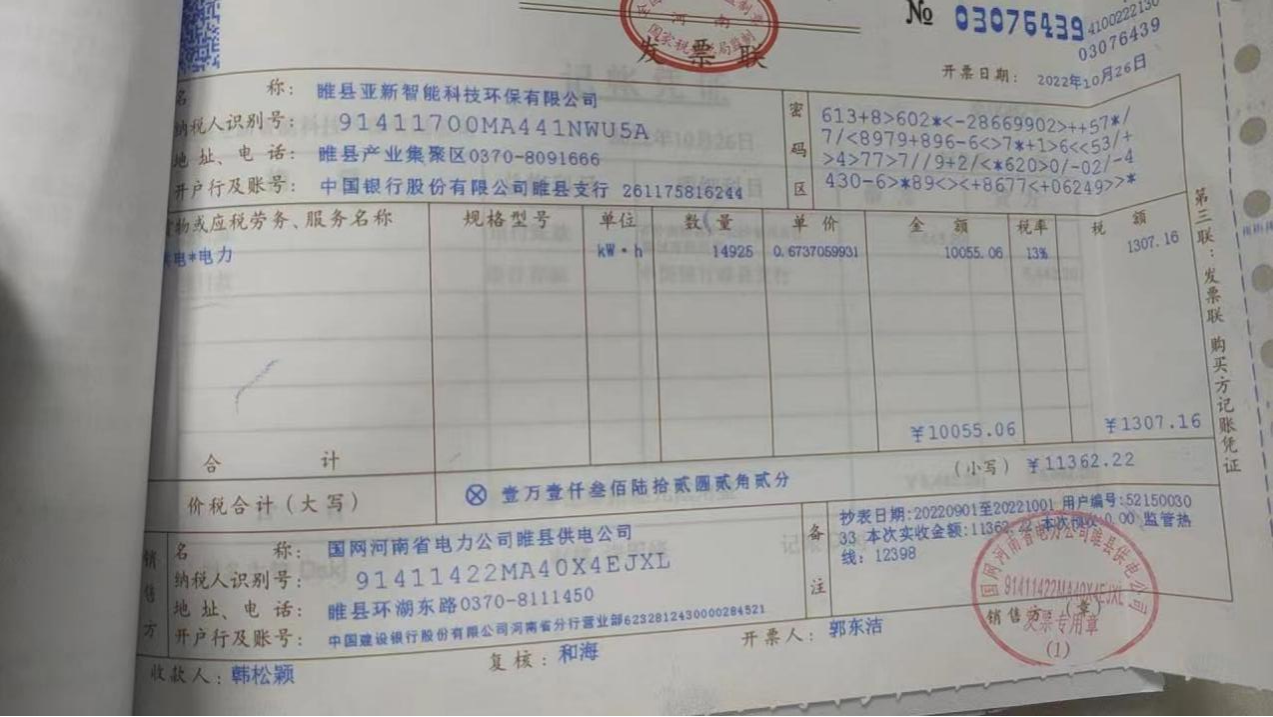 No 03076439
4100222130
03076439
发票联
开票日期: 2022年10月26日
名 称: 睢县亚新智能科技环保有限公司
纳税人识别号: 91411700MA441NWU5A
地址、电话: 睢县产业集聚区0370-8091666
开户行及账号: 中国银行股份有限公司睢县支行 261175816244
密码区
613+8>602*<-28669902>++57*/
7/<8979+896-6<>7*+1>6<<53/+
>4>77>7//9+2/<*620>0/-02/-4
430-6>*89<><+8677<+06249>>*
物或应税劳务、服务名称 规格型号 单位 数量 单价 金额 税率 税额
电*电力 kW·h 14925 0.6737059931 10055.06 13% 1307.16
合计 ¥10055.06 ¥1307.16
价税合计(大写) ⊗ 壹万壹仟叁佰陆拾贰圆贰角贰分 (小写) ¥11362.22
销售方
名 称: 国网河南省电力公司睢县供电公司
纳税人识别号: 91411422MA40X4EJXL
地址、电话: 睢县环湖东路0370-8111450
开户行及账号: 中国建设银行股份有限公司河南省分行营业部6232812430000284521
备注
抄表日期:20220901至20221001 用户编号:52150030
33 本次实收金额:11362.22 本次预收:0.00 监管热
线: 12398
收款人: 韩松颖
复核: 和海
开票人: 郭东洁
销售方:(章)
国网河南省电力公司睢县供电公司
91411422MA40X4EJXL
发票专用章
(1)
第三联:发票联 购买方记账凭证